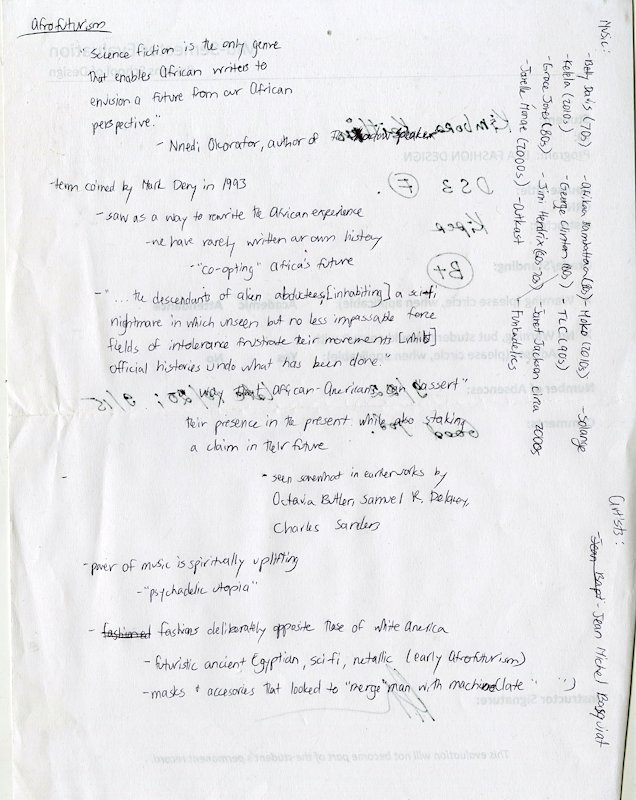 Afrofuturism
"Science fiction is the only genre
that enables African writers to
envision a future from our African
perspective."
- Nnedi Okorafor, author of
-term coined by Mark Dery in 1993
- saw as a way to rewrite the African experience
-we have rarely written our own history
-"co-opting" africa's future
- "... the descendants of alien abductees,[inhabiting] a sci-fi
nightmare in which unseen but no less impassable force
fields of intolerance frustrate their movements
official histories undo what has been done.
- way that African-Americans can assert"
their presence in the present while also staking
a claim in their future
- seen somewhat in earlier works by
Octavia Butler, Samuel R. Delaney,
Charles Sanders
-power of music is spiritually uplifting
-"psychadelic utopia"
- fashioned fashions deliberately opposite those of white America
- futuristic ancient Egyptian, sci fi, metallic (early Afrofuturism)
- masks + accesories that looked to "merge" man with machine (late " )
Music:
- Betty Davis (70s) - Afrikaa Bambaataa (80s) - Moko (2010s) - Solange
- Kelela (2010s) - George Clinton (80s) - TLC (90s)
- Grace Jones (80s) - Jimi Hendrix (60s-70s) - Janet Jackson circa 2000s
- Janelle Monae (2000s) - Outkast - Funkadelics
Artists:
- Jean Bapt - Jean Michel Basquiat
Kimbora
DS3 F
Kiper
B+
Program: FASHION DESIGN
Number of Absences:
Instructor Signature:
This evaluation will not become part of the student's permanent record.